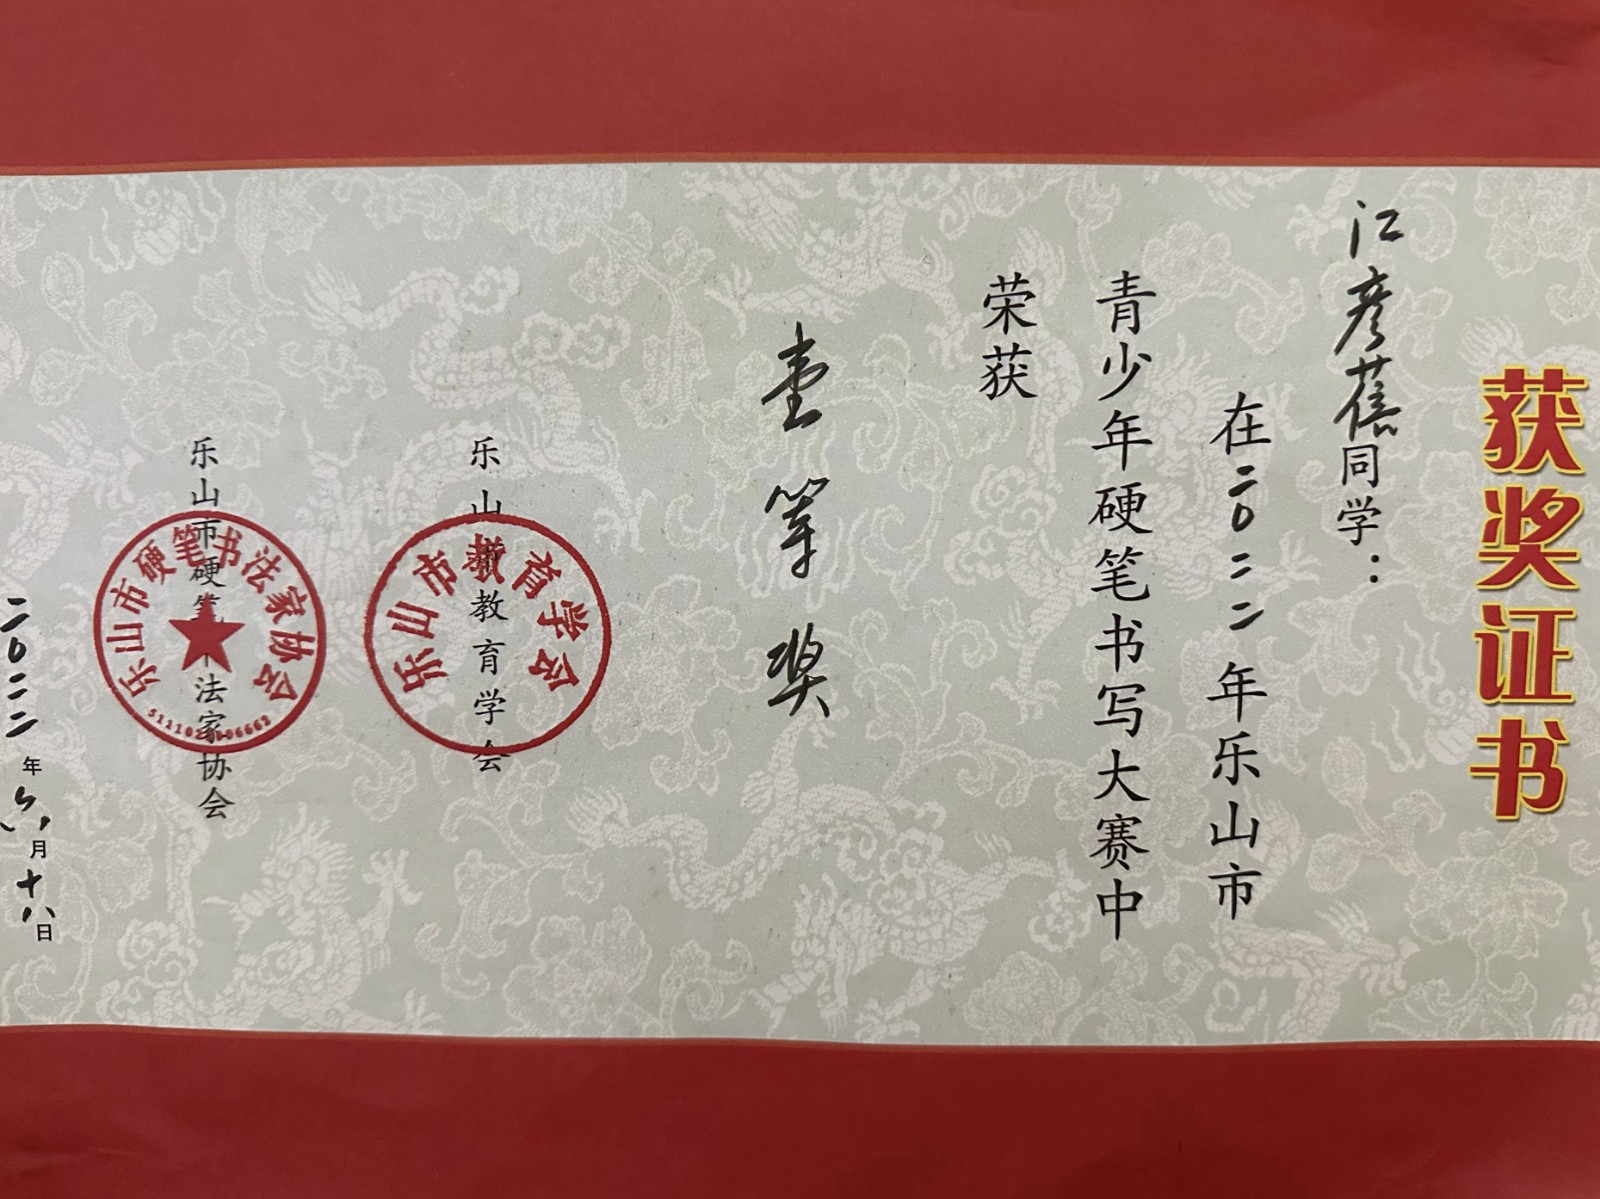 获奖证书
江彦蓓同学：
在二0二二年乐山市
青少年硬笔书写大赛中
荣获
壹等奖
乐山市教育学会
乐山市教育学会
乐山市硬笔书法家协会
乐山市硬笔书法家协会
二0二二年六月十八日